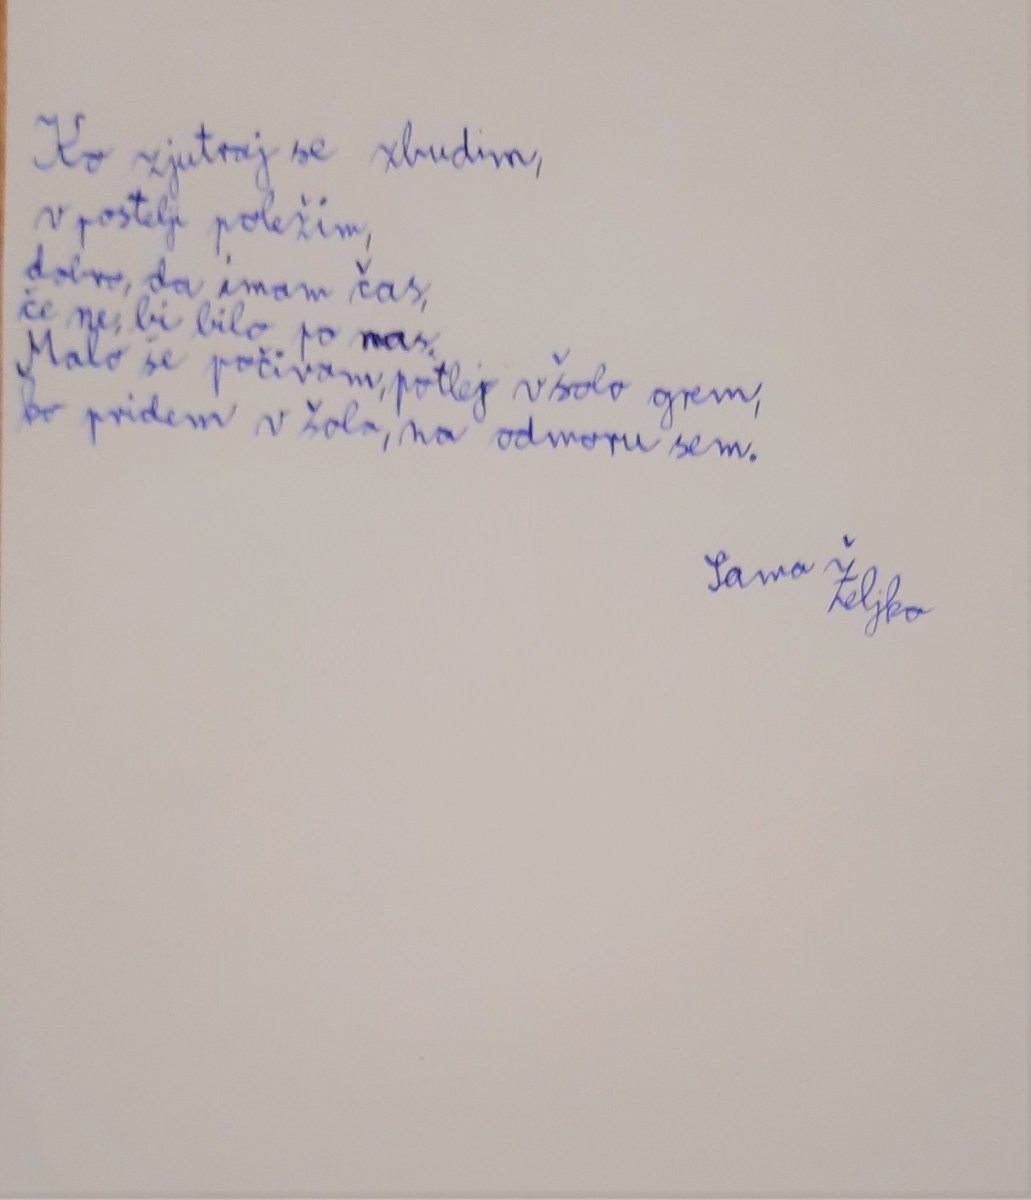 Ko zjutraj se zbudim,
v postelji poležim,
dobro, da imam čas,
če ne, bi bilo po nas.
Malo še počivam, potlej v šolo grem,
ko pridem v šolo, na odmoru sem.
Sama
Željko